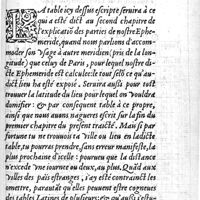 LA table icy dessus escripte seruira à ce
qui a esté dict au second chapitre de
l'explicatiõ des parties de nostre Ephe-
meride, quand nom parlons d'accom-
moder son vsage à autre meridien, pris de la lon-
gitude, que celuy de Paris, pour lequel nostre di-
cte Ephemeride est calculee: le tout selõ ce qu'au-
dict lieu ha esté exposé. Seruira aussi pour tost
trouuer la latitude du lieu pour lequel on vouldra
domifier: & par consequent table à ce propre,
ainsi que nous auons nagueres escrit sur la fin du
premier chapitre du present traicté. Mais si par
fortune tu ne trouuois ta ville ou lieu en ladicte
table, tu pourras prendre, sans erreur manifeste, la
plus prochaine d'icelle: pourueu que la distance
n'excede vne iournee ou deux, au plus. Quãd aux
villes des païs estranges, i'ay esté contrainct les
omettre, parautãt qu'elles peuuent estre cogneues
des tables Latines de plusieurs: & qu'aussi l'estu-